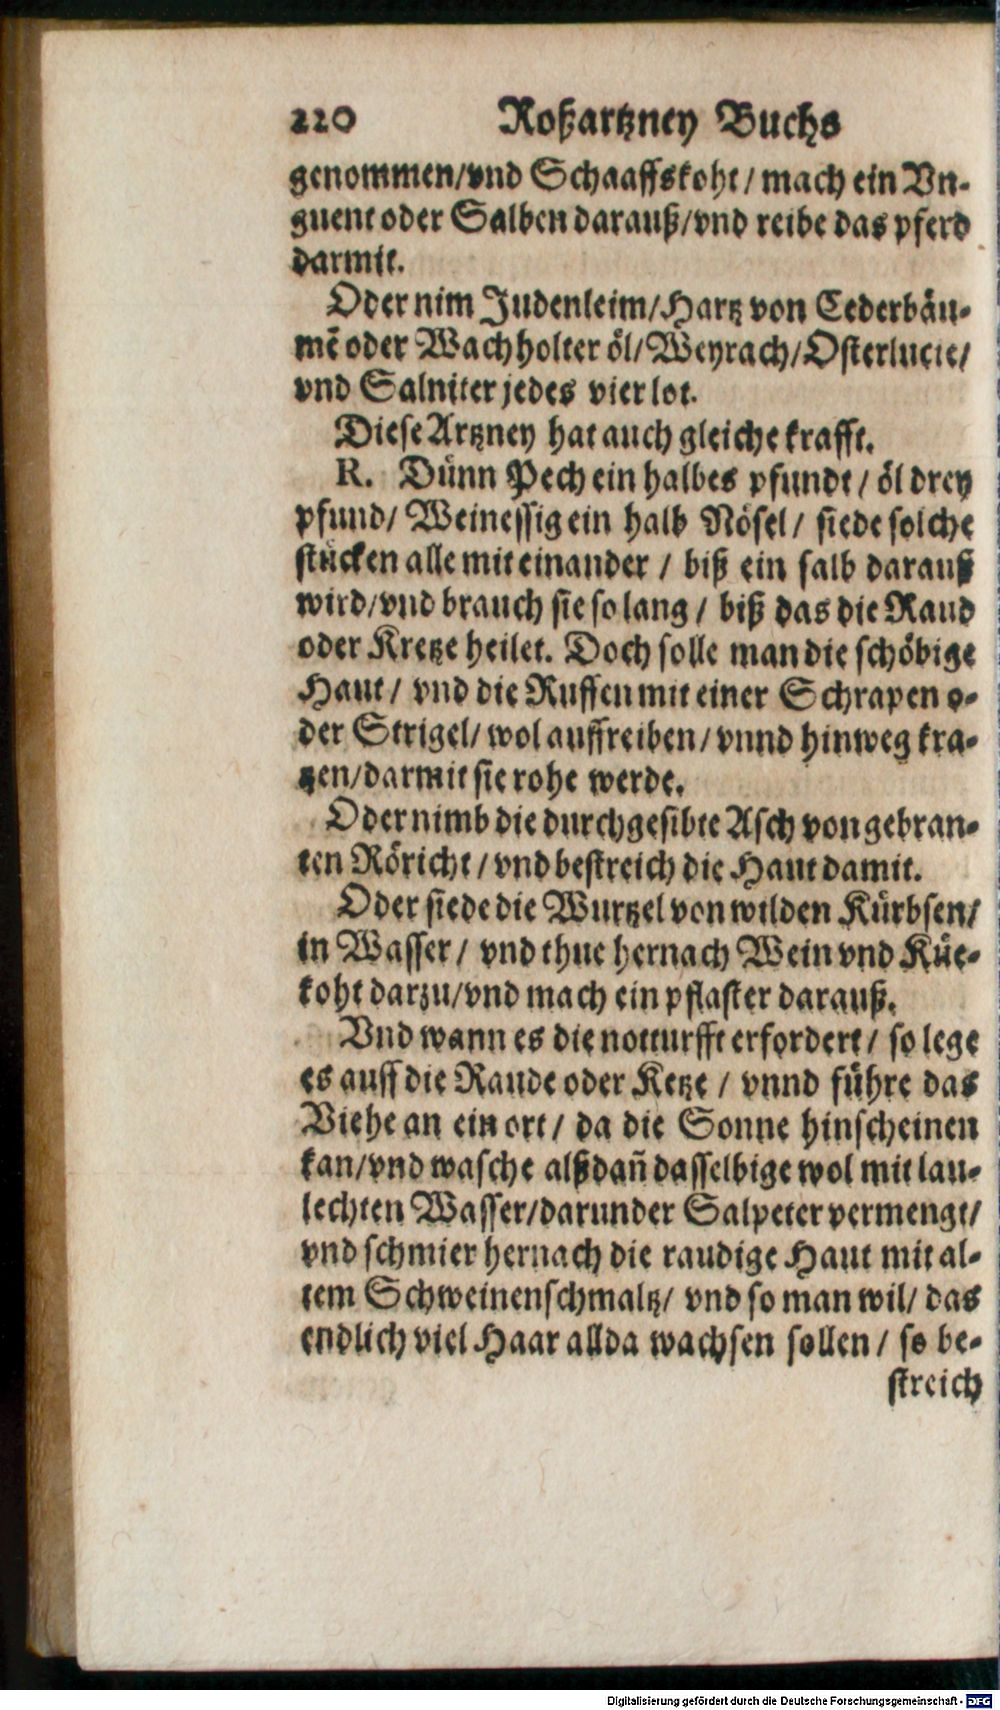 220 Roßartzney Buchs
genommen/vnd Schaaffskoht/ mach ein Vn-
guent oder Salben darauß/vnd reibe das pferd
darmit.
Oder nim Judenleim/Hartz von Cederbäu-
mē oder Wachholter öl/Weyrach/Osterlucie/
vnd Salniter jedes vier lot.
Diese Artzney hat auch gleiche krafft.
R. Dünn Pech ein halbes pfundt/ öl drey
pfund/ Weinessig ein halb Nösel/ siede solche
stücken alle mit einander / biß ein salb darauß
wird/vnd brauch sie so lang / biß das die Raud
oder Kretze heilet. Doch solle man die schöbige
Haut/ vnd die Ruffen mit einer Schrapen o-
der Strigel/ wol auffreiben/ vnnd hinweg kra-
tzen/darmit sie rohe werde.
Oder nimb die durchgesibte Asch von gebran-
ten Röricht/vnd bestreich die Haut damit.
Oder siede die Wurtzel von wilden Kürbsen/
in Wasser/ vnd thue hernach Wein vnd Küe-
koht darzu/vnd mach ein pflaster darauß.
Vnd wann es die notturfft erfordert/ so lege
es auff die Raude oder Ketze / vnnd führe das
Viehe an ein ort/ da die Sonne hinscheinen
kan/vnd wasche alßdañ dasselbige wol mit lau-
lechten Wasser/darunder Salpeter vermengt/
vnd schmier hernach die raudige Haut mit al-
tem Schweinenschmaltz/ vnd so man wil/ das
endlich viel Haar allda wachsen sollen/ so be-
streich
Digitalisierung gefördert durch die Deutsche Forschungsgemeinschaft - DFG